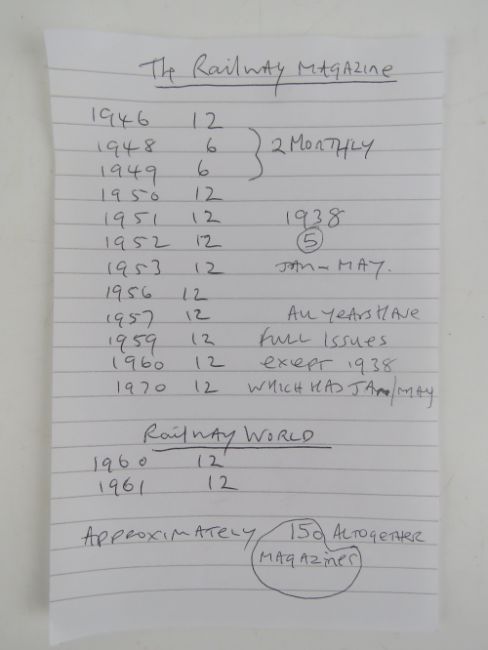 The Railway Magazine
1946 12
1948 6 2 Monthly
1949 6
1950 12
1951 12 1938
1952 12 5
1953 12 Jan - May.
1956 12
1957 12 All years have
1959 12 full issues
1960 12 except 1938
1970 12 which had Jan/May
Railway World
1960 12
1961 12
Approximately 150 altogether
magazines